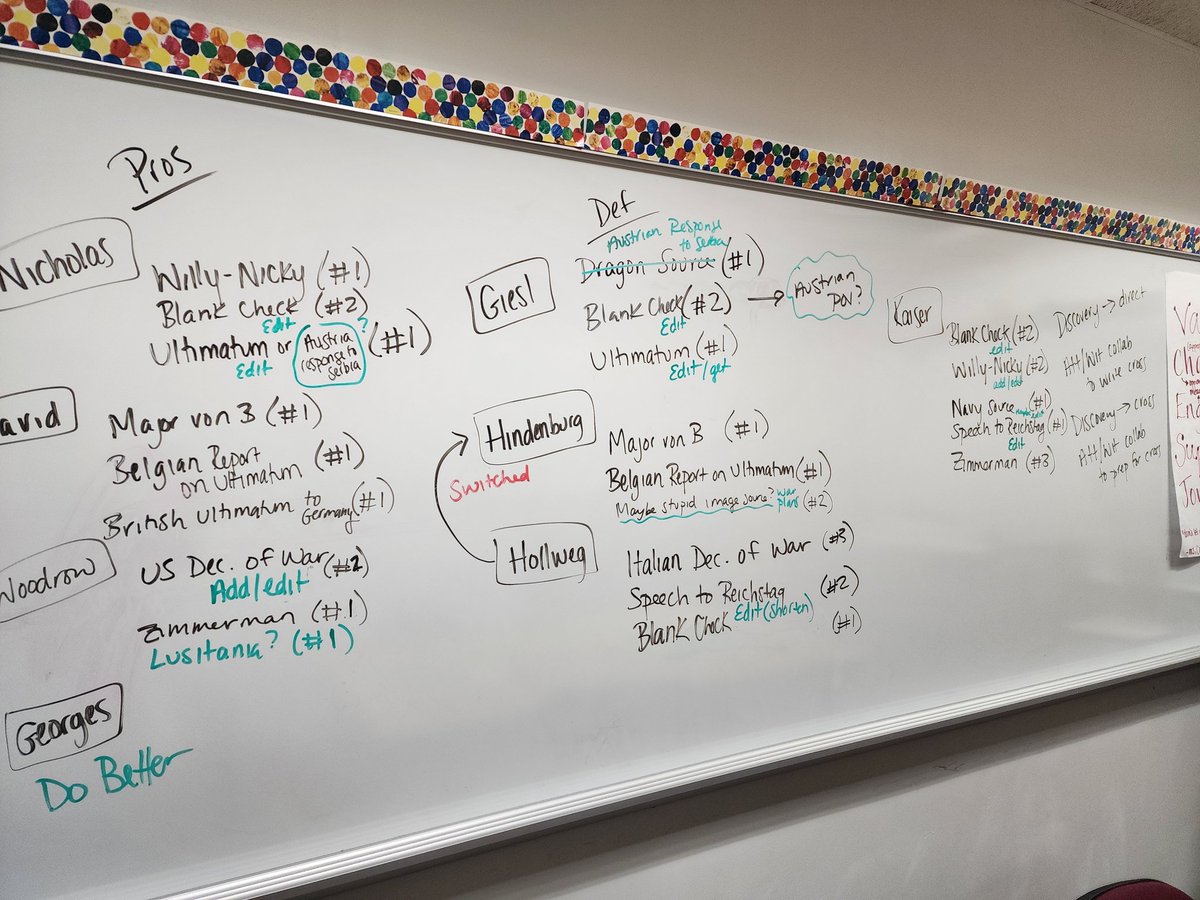 Pros
Nicholas
Willy-Nicky (#1)
Blank Check (#2)
Edit
Ultimatum or Austria response to Serbia ? (#1)
Edit
avid
Major von B (#1)
Belgian Report on Ultimatum (#1)
British Ultimatum to Germany (#1)
Woodrow
US Dec. of War (#2)
Add/edit
Zimmerman (#1)
Lusitania? (#1)
Georges
Do Better
Def
Giesl
Austrian Response
to Serbia
Dragon Source (#1)
Blank Check (#2)
Edit
Austrian
POV?
Ultimatum (#1)
Edit/get
Hindenburg
Switched
Major von B (#1)
Belgian Report on Ultimatum (#1)
Maybe stupid image source? war plans (#2)
Hollweg
Italian Dec. of War (#3)
Speech to Reichstag (#2)
Edit (shorten)
Blank Check (#1)
Kaiser
Blank Check (#2)
edit
Willy-Nicky (#2)
add/edit
Navy Source (#1)
maybe edit
Speech to Reichstag (#1)
Edit
Zimmerman (#3)
Discovery → direct
Att/Wit collab
to write cross
Discovery → cross
Att/Wit collab
to prep for cross